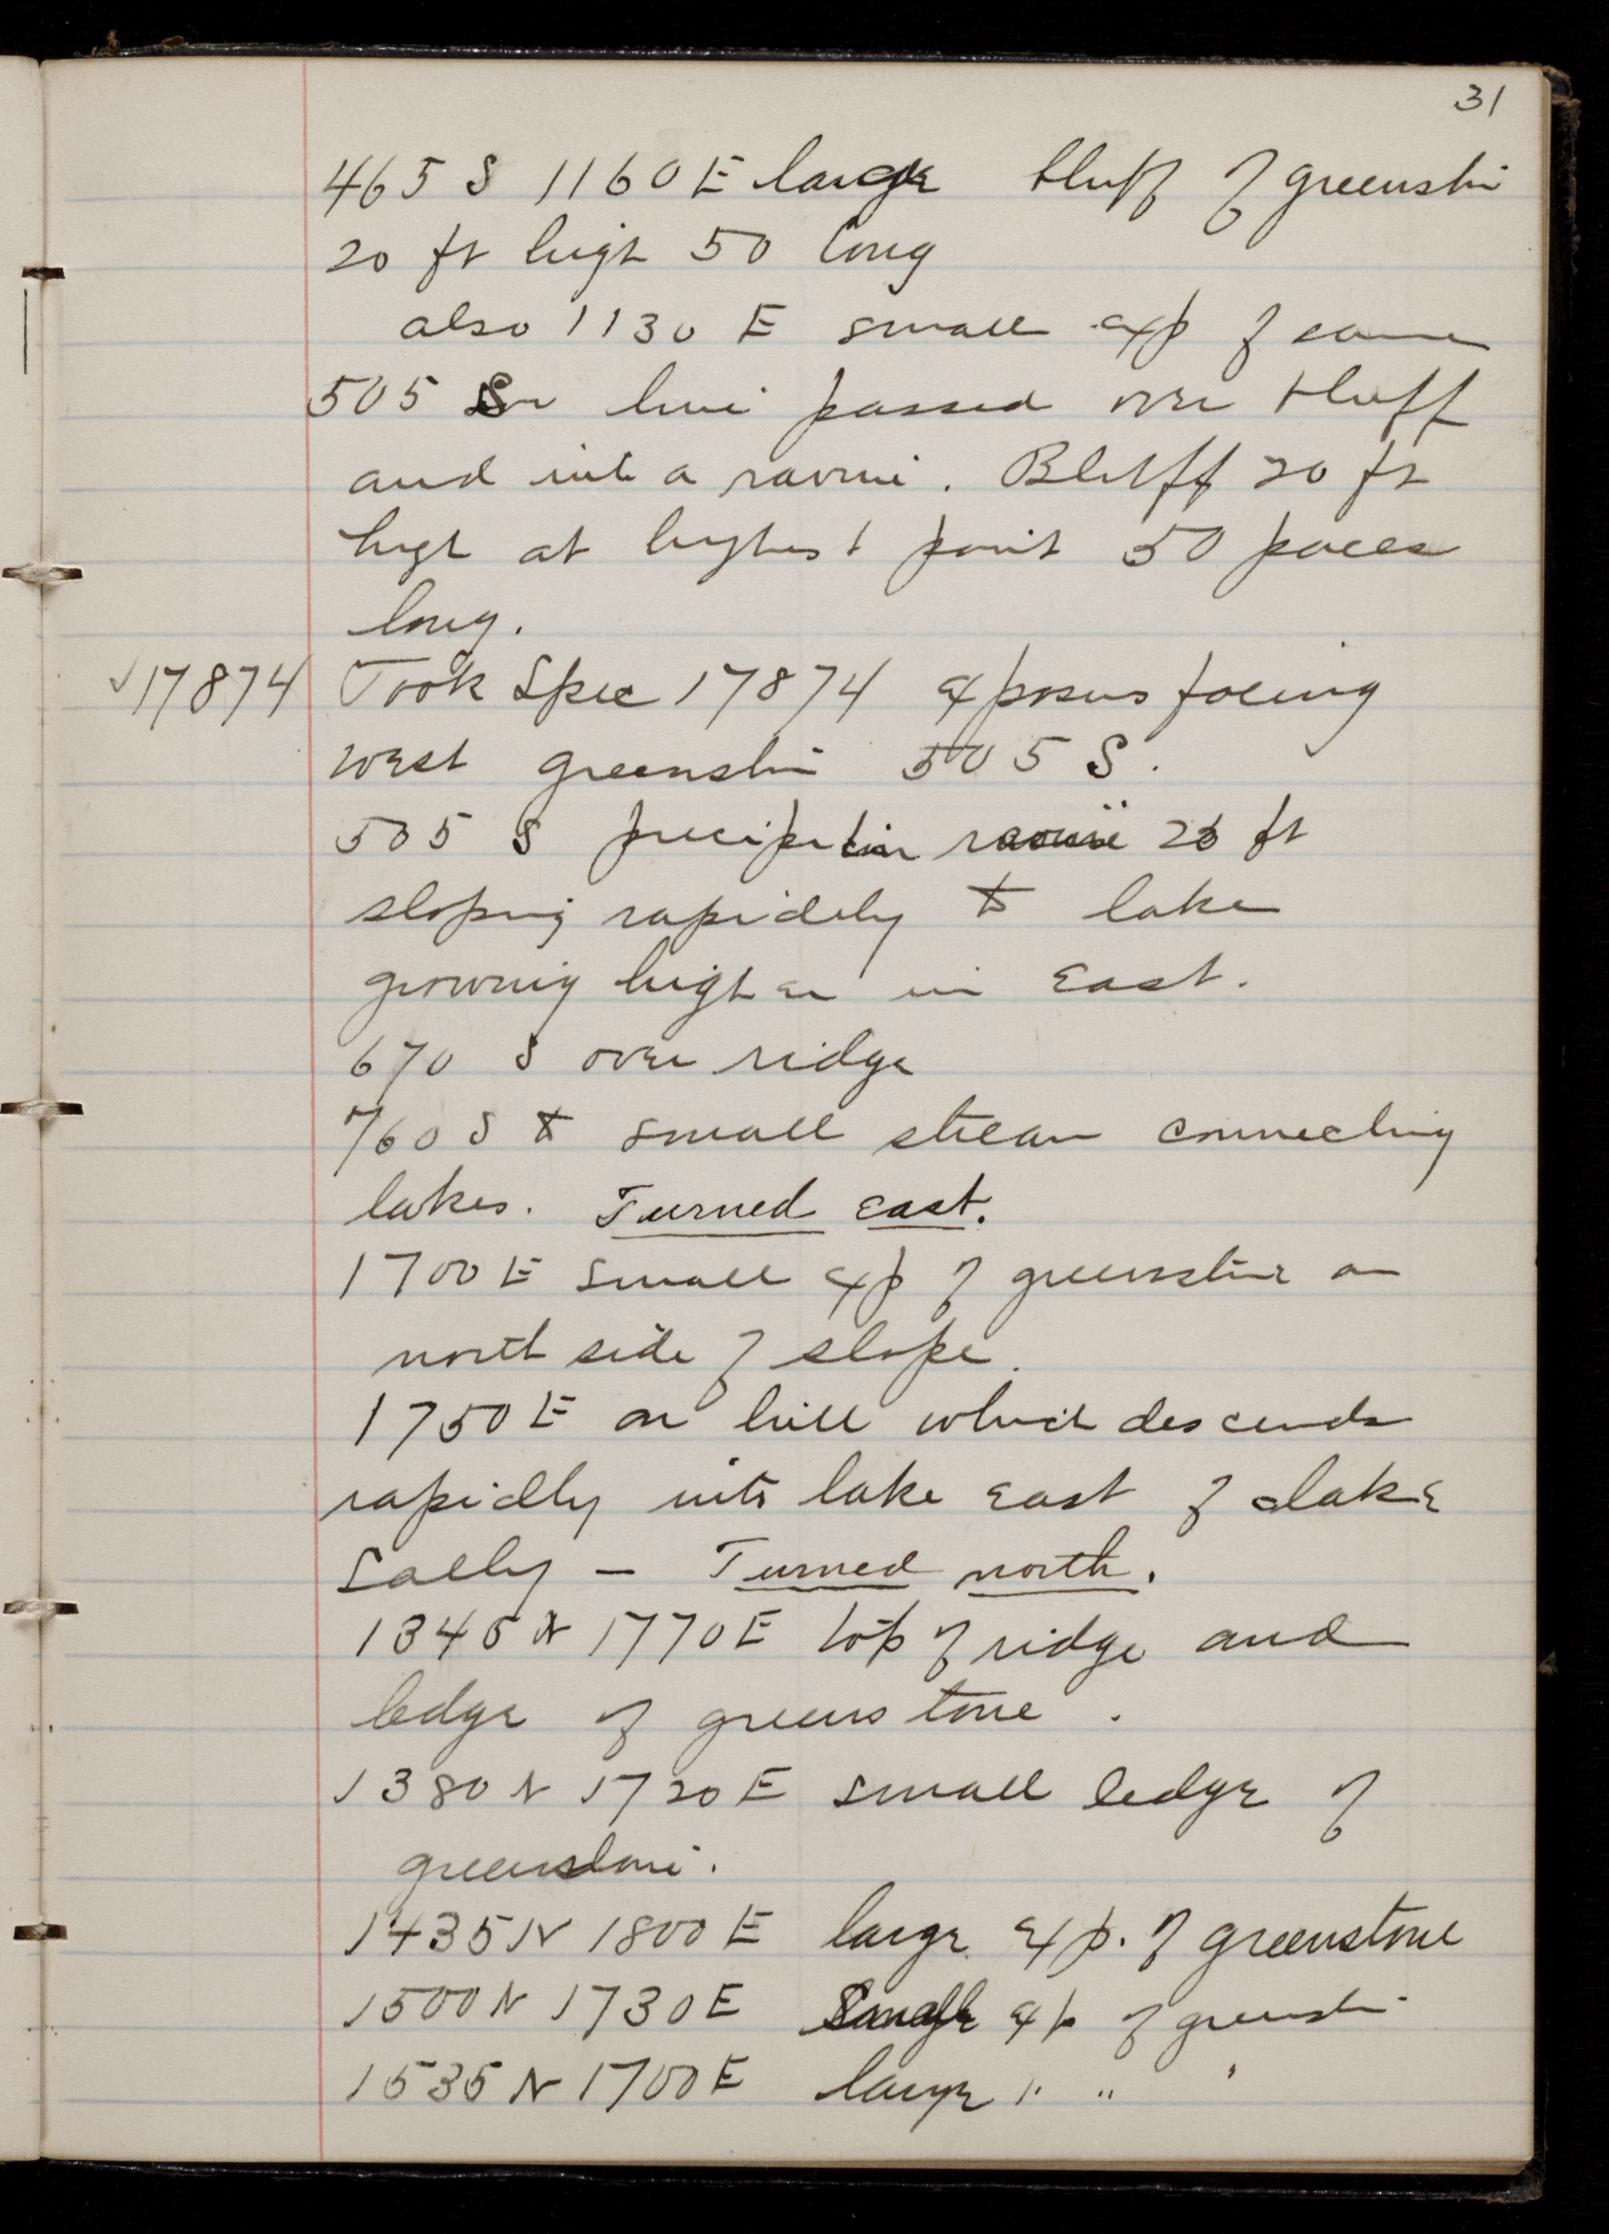 31
465 S 1160 E large bluff of greenstn
20 ft high 50 long
also 1130 E small exp of same
505 S line passed over bluff
and into a ravine. Bluff 20 ft
high at highest point 50 paces
long.
√17874 Took Spec 17874 exposure facing
west greenstn 505 S.
505 S precipitin ravine 20 ft
sloping rapidely to lake
growing higher in East.
670 S over ridge
760 S to small stream connecting
lakes. Turned East.
1700 E small exp of greenstone on
north side of slope.
1750 E on hill which descends
rapidly into lake East of lake
Sally – Turned north.
1345 N 1770 E top of ridge and
ledge of greenstone.
1380 N 1720 E small ledge of
greenstone.
1435 N 1800 E large exp. of greenstone
1500 N 1730 E exp of greenstn
1535 N 1700 E large " " "